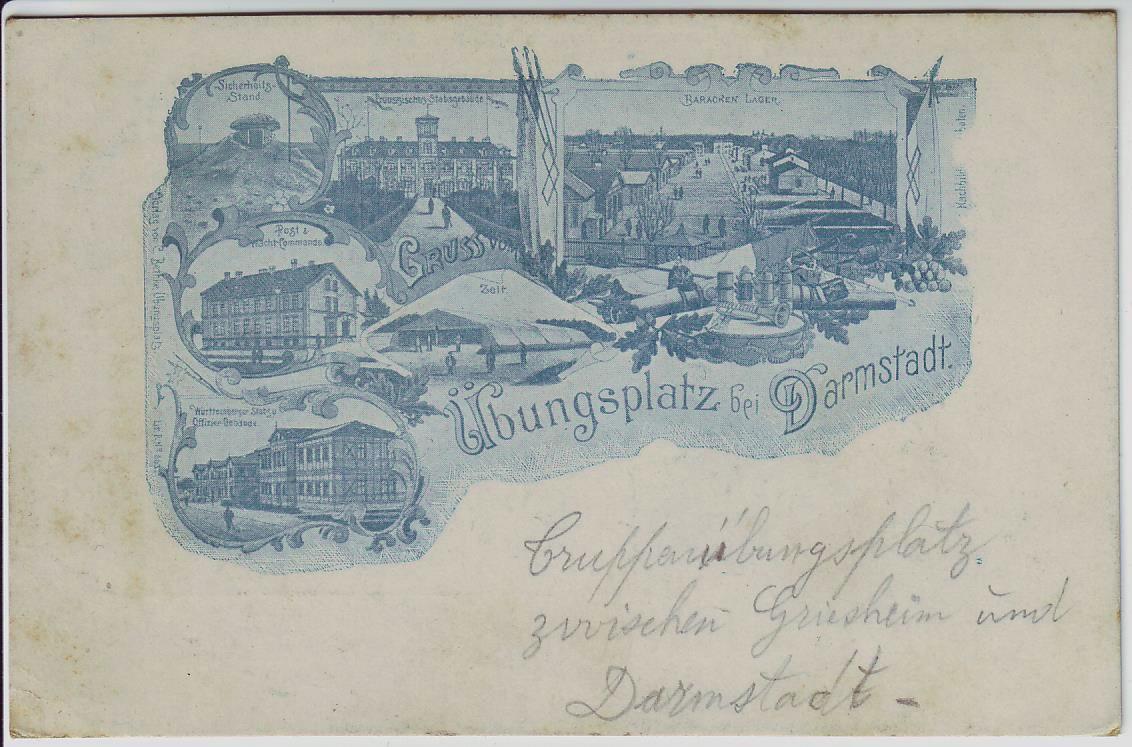 Sicherheits-
Stand.
Preussisches-Stabsgebäude
BARACKEN LAGER.
Post &
Wacht-Commando.
GRUSS VOM
Zelt.
Württemberger Stabs u.
Offizier-Gebäude.
Übungsplatz bei Darmstadt.
Truppenübungsplatz
zwischen Griesheim und
Darmstadt -